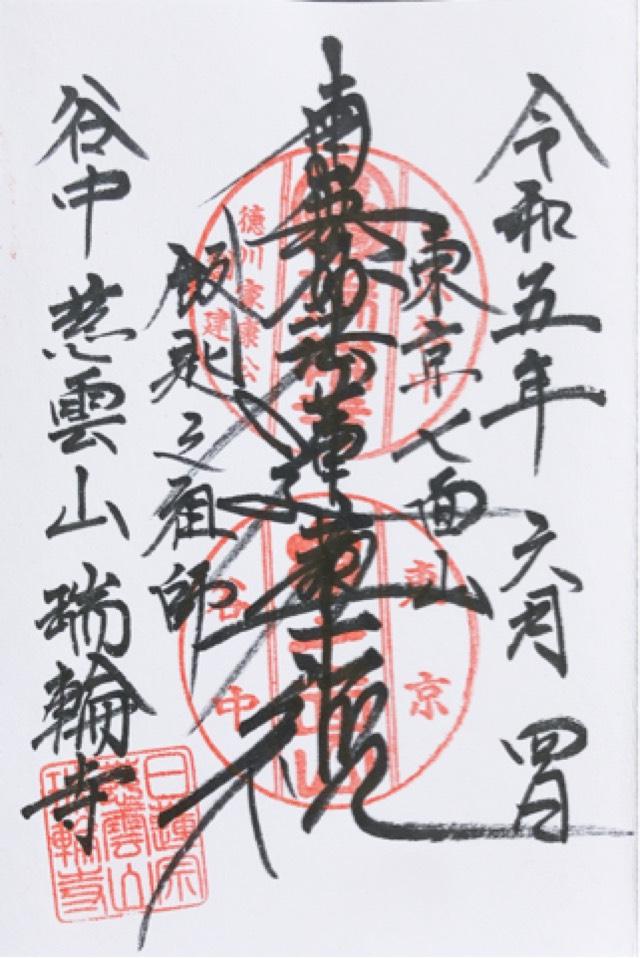 令和五年 六月 四日
東京七面山
南無妙法蓮華経
飯匙之祖師
谷中 慈雲山 瑞輪寺
徳川家康公
建
東京
谷中
日蓮宗
慈雲山
瑞輪寺